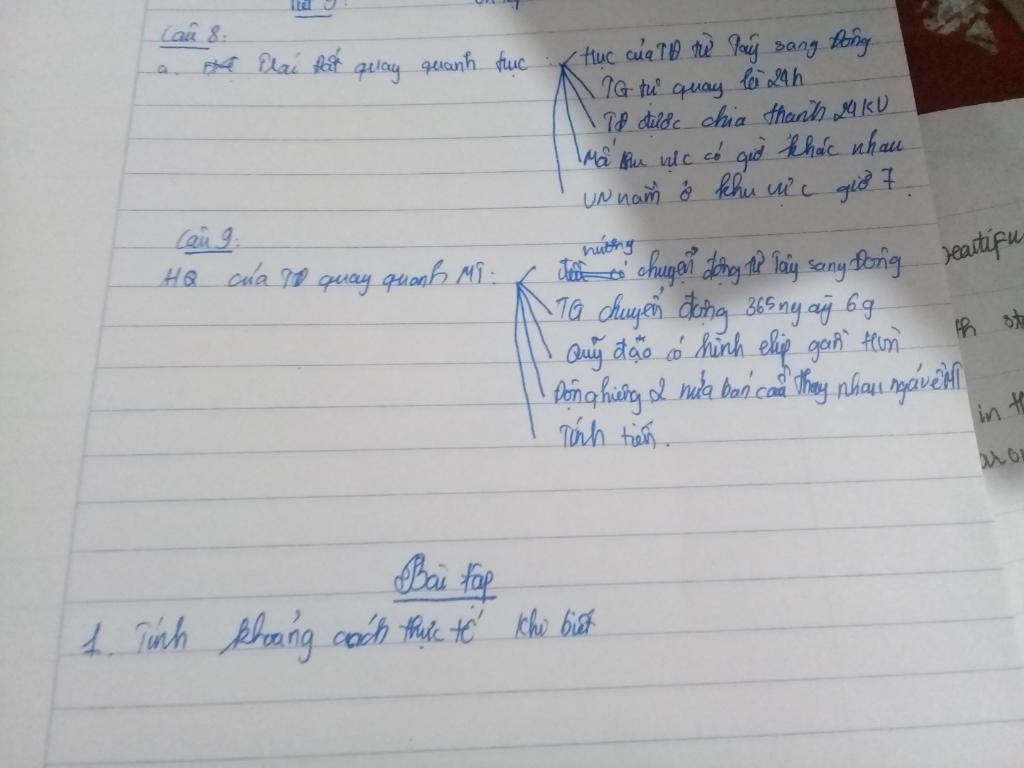 Câu 8:
a. Trái đất quay quanh trục : trục của TĐ từ Tây sang Đông
TG tự quay là 24h
TĐ được chia thành 24KV
Mỗi khu vực có giờ khác nhau
VN nằm ở khu vực giờ 7.
Câu 9:
HQ của TĐ quay quanh MT: hướng chuyển động từ Tây sang Đông
TG chuyển động 365 ngày 6g
Quỹ đạo có hình elip gần tròn
Độ nghiêng 2 nửa bán cầu thay nhau ngả về MT
Tính tiến.
Bài tập
1. Tính khoảng cách thực tế khi biết
beautifu
th
in th